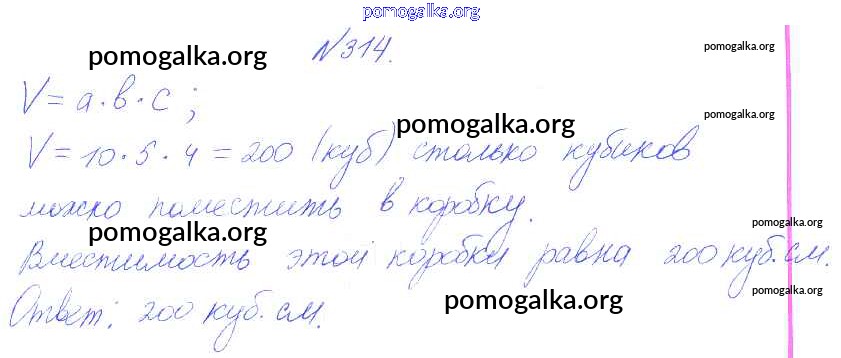 pomogalka.org
№314.
pomogalka.org
pomogalka.org
V = a · b · c ;
pomogalka.org
pomogalka.org
V = 10 · 5 · 4 = 200 (куб) столько кубиков
можно поместить в коробку.
pomogalka.org
pomogalka.org
Вместимость этой коробки равна 200 куб. см.
pomogalka.org
pomogalka.org
Ответ: 200 куб. см.